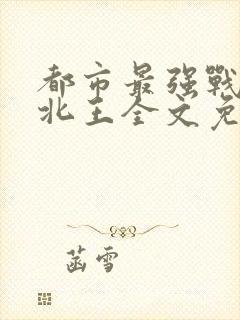 都市最强戰
北王全文免
菡雪